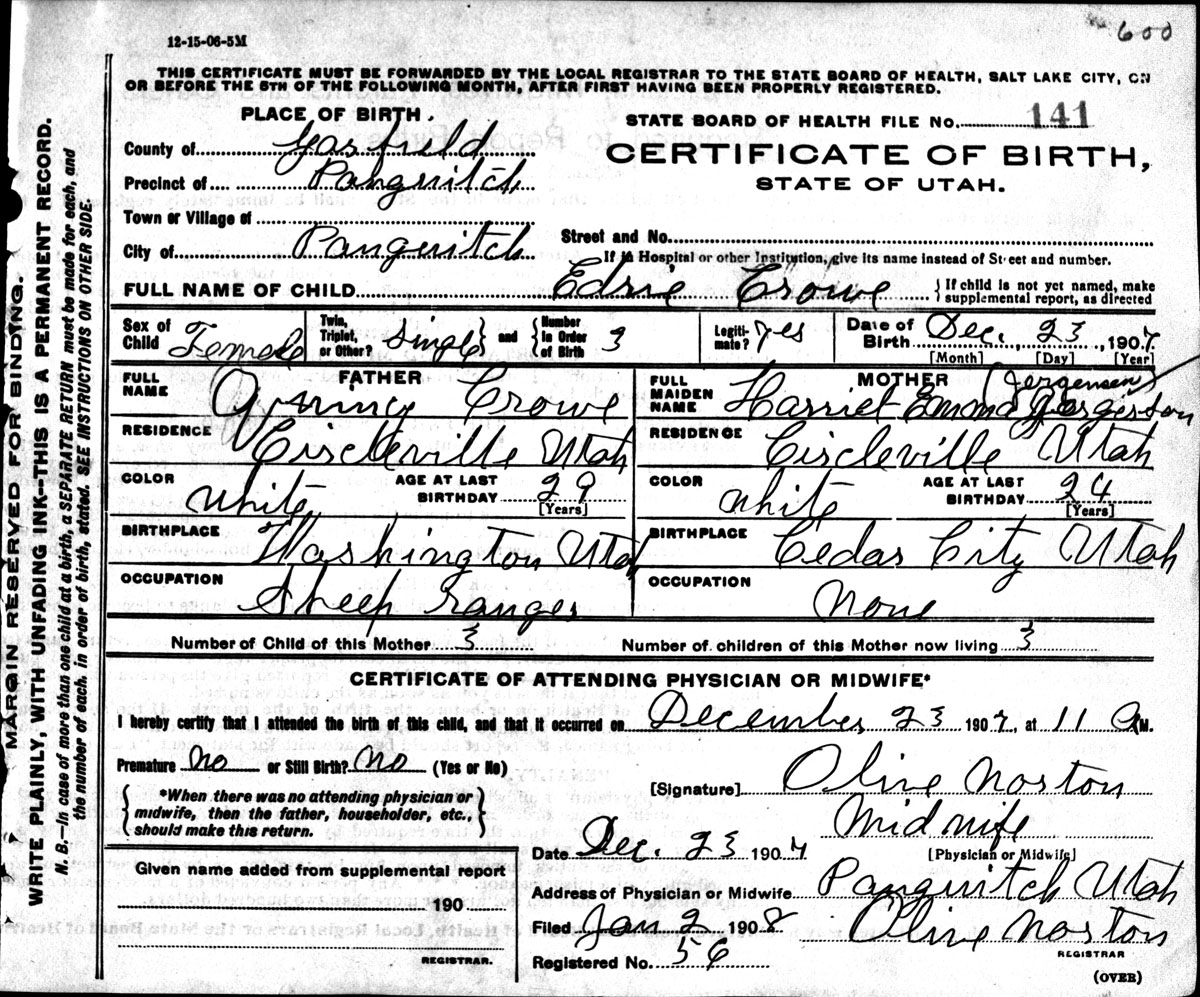 600
12-15-06-5M
THIS CERTIFICATE MUST BE FORWARDED BY THE LOCAL REGISTRAR TO THE STATE BOARD OF HEALTH, SALT LAKE CITY, ON
OR BEFORE THE 5TH OF THE FOLLOWING MONTH, AFTER FIRST HAVING BEEN PROPERLY REGISTERED.
PLACE OF BIRTH.
County of Garfield
Precinct of Panguitch
Town or Village of
City of Panguitch
STATE BOARD OF HEALTH FILE No. 141
CERTIFICATE OF BIRTH,
STATE OF UTAH.
Street and No.
If in Hospital or other Institution, give its name instead of Street and number.
FULL NAME OF CHILD Edrie Crowe
If child is not yet named, make
supplemental report, as directed
Sex of Child Female
Twin, Triplet, or Other? Single and Number in Order of Birth 3
Legitimate? Yes
Date of Birth Dec. 23, 1907
[Month] [Day] [Year]
FATHER
FULL NAME Crowe
RESIDENCE Circleville Utah
COLOR White
AGE AT LAST BIRTHDAY 29
[Years]
BIRTHPLACE Washington Utah
OCCUPATION Sheep ranger
MOTHER (Jergensen)
FULL MAIDEN NAME Harriet Emma
RESIDENCE Circleville Utah
COLOR White
AGE AT LAST BIRTHDAY 24
[Years]
BIRTHPLACE Cedar City Utah
OCCUPATION None
Number of Child of this Mother 3
Number of children of this Mother now living 3
CERTIFICATE OF ATTENDING PHYSICIAN OR MIDWIFE*
I hereby certify that I attended the birth of this child, and that it occurred on December 23 1907, at 11 A M.
Premature No or Still Birth? No (Yes or No)
*When there was no attending physician or
midwife, then the father, householder, etc.,
should make this return.
[Signature] Olive Norton
Midwife
[Physician or Midwife]
Date Dec. 23 1907
Address of Physician or Midwife Panguitch Utah
Filed Jan 2 1908 Olive Norton
REGISTRAR
Registered No. 56
(OVER)
Given name added from supplemental report
190
REGISTRAR.
MARGIN RESERVED FOR BINDING.
WRITE PLAINLY, WITH UNFADING INK—THIS IS A PERMANENT RECORD.
N. B.—In case of more than one child at a birth, a SEPARATE RETURN must be made for each, and
the number of each, in order of birth, stated. SEE INSTRUCTIONS ON OTHER SIDE.